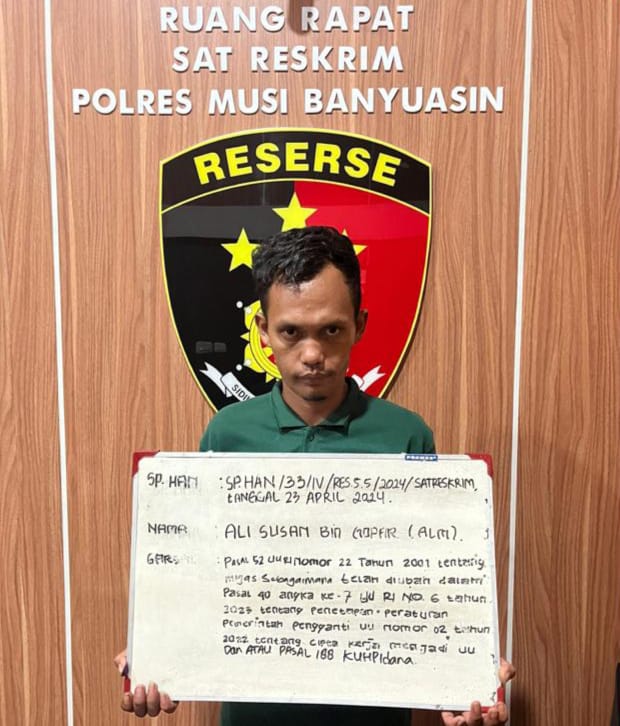 RUANG RAPAT
SAT RESKRIM
POLRES MUSI BANYUASIN
RESERSE
SIDIK
SP. HAN : SP.HAN/33/IV/RES.5.5/2024/SATRESKRIM,
TANGGAL 23 APRIL 2024.
NAMA : ALI SUSAN BIN GOPFIR (ALM).
: Pasal 52 UU RI Nomor 22 Tahun 2001 tentang
migas Sebagaimana telah diubah dalam
Pasal 40 angka ke-7 UU RI NO. 6 tahun
2023 tentang penetapan peraturan
Pemerintah pengganti UU nomor 02 tahun
2022 tentang cipta kerja menjadi UU
Dan ATAU PASAL 188 KUHPidana.